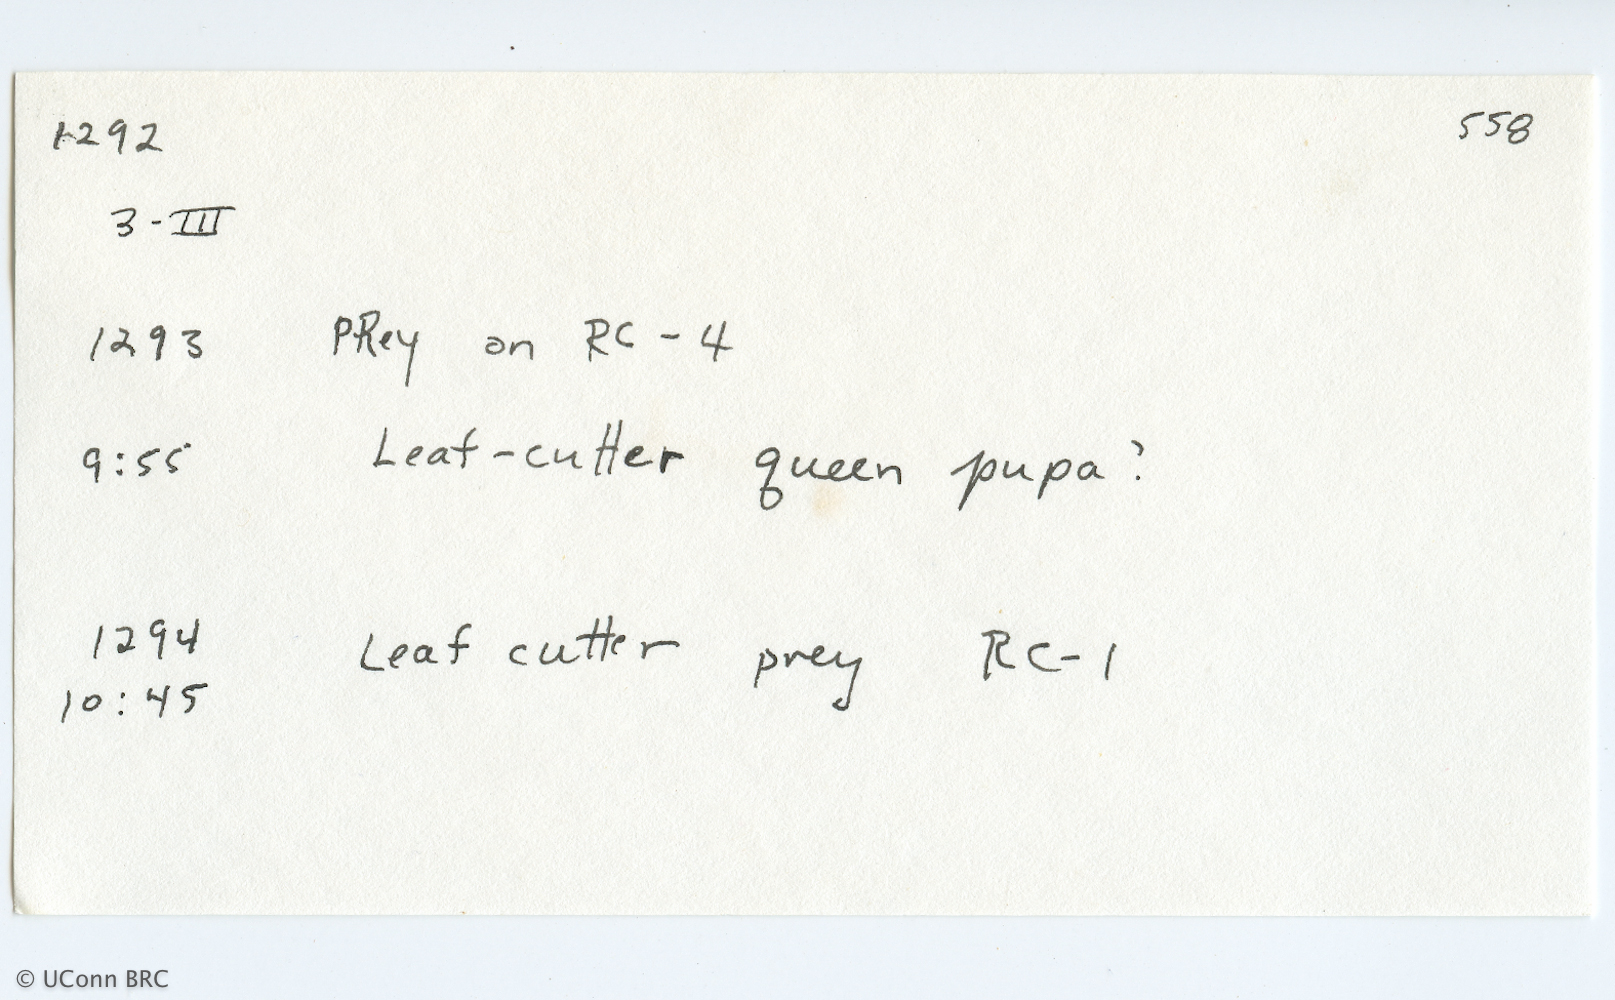 1292 558
3-III
1293 PRey on RC-4
9:55 Leaf-cutter queen pupa?
1294 Leaf cutter prey RC-1
10:45
© UConn BRC